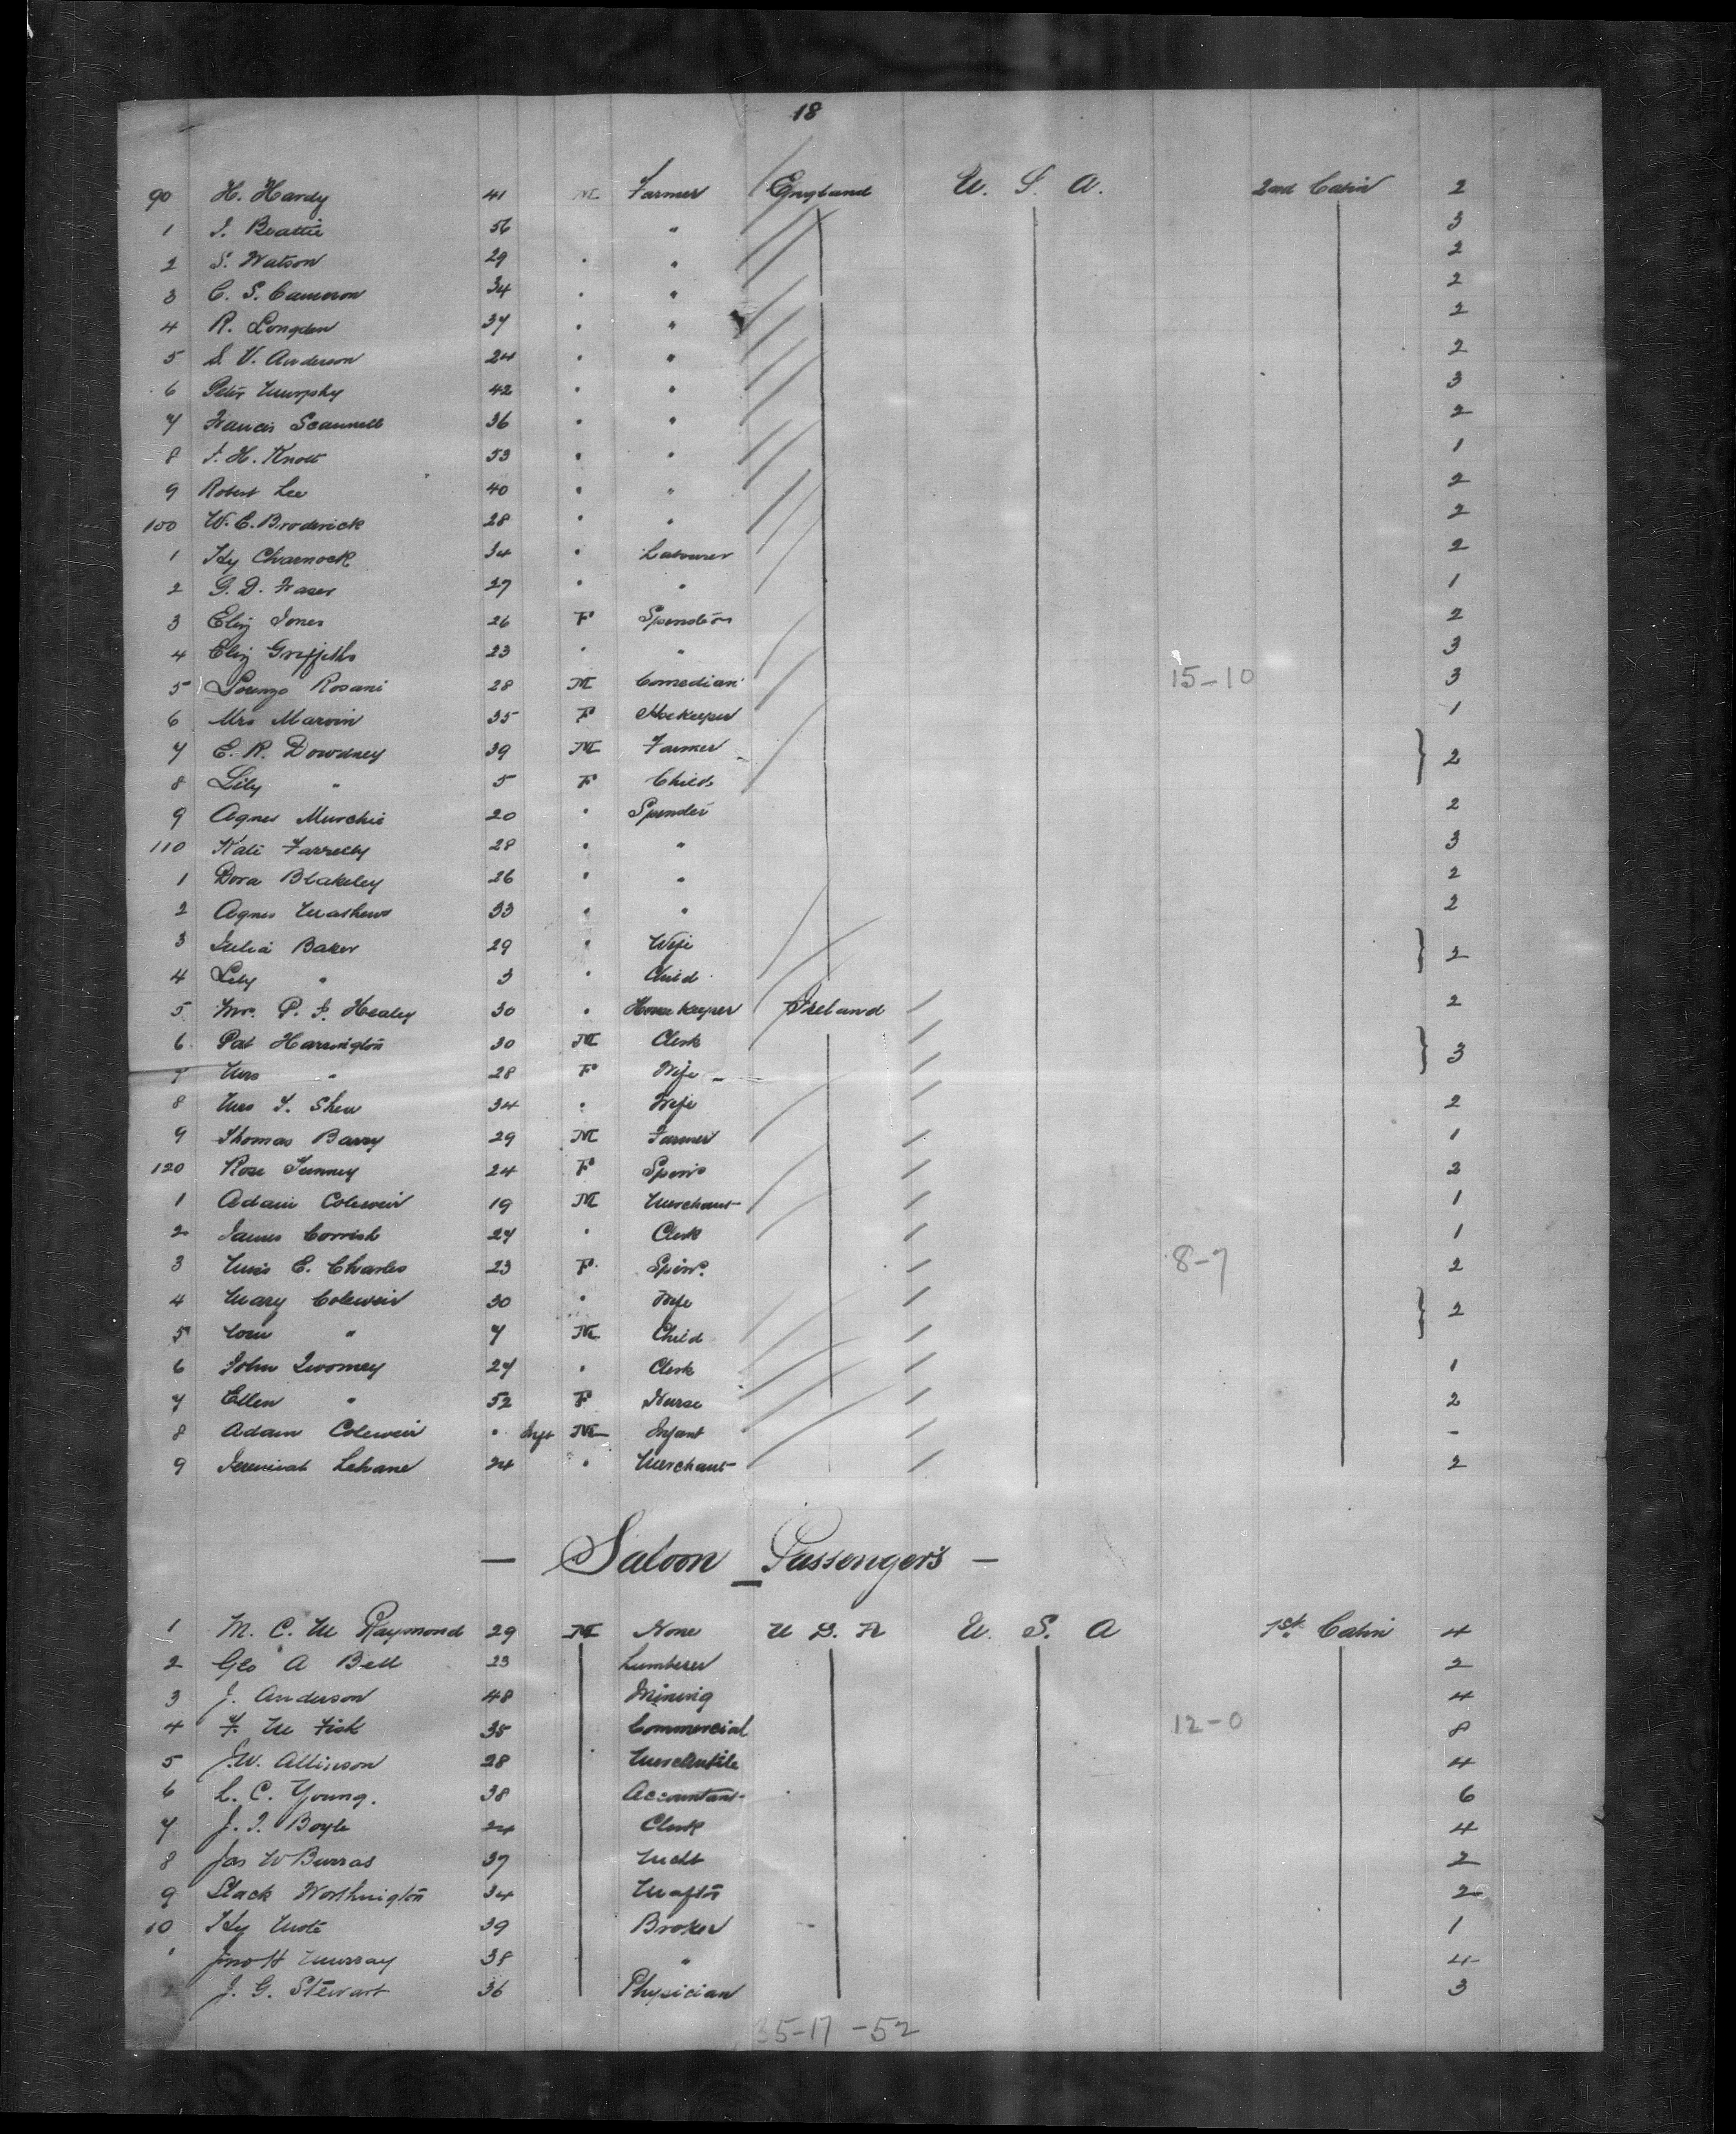 18
90 H. Hardy 41 M Farmer England U. S. A. 2nd Cabin 2
1 J. Beattie 56 " 3
2 S. Watson 29 " " 2
3 C. S. Cameron 34 " " 2
4 R. Longden 37 " " 2
5 S. V. Anderson 24 " " 2
6 Peter Murphy 42 " " 3
7 Francis Scannell 36 " " 2
8 J. H. Knott 53 " " 1
9 Robert Lee 40 " " 2
100 W. E. Broderick 28 " " 2
1 Hy Charnock 34 " Labourer 2
2 G. D. Fraser 27 " " 1
3 Eliz Jones 26 F Spinster 2
4 Eliz Griffiths 23 " " 3
5 Lorenzo Rosani 28 M Comedian 15-10 3
6 Mrs Marvin 35 F Hsekeeper 1
7 E. R. Dowdney 39 M Farmer } 2
8 Lily " 5 F Child
9 Agnes Murchie 20 " Spinster 2
110 Kate Farrelly 28 " " 3
1 Dora Blakeley 26 " " 2
2 Agnes Mathews 33 " " 2
3 Julia Baker 29 " Wife } 2
4 Lily " 3 " Child
5 Mrs. P. J. Healey 30 " Housekeeper Ireland 2
6 Pat Harrington 30 M Clerk } 3
7 Mrs " 28 F Wife
8 Mrs T. Shea 34 " Wife 2
9 Thomas Barry 29 M Farmer 1
120 Rose Tunney 24 F Spins 2
1 Adam Coleweir 19 M Merchant 1
2 James Cornish 27 " Clerk 1
3 Miss E. Charles 23 F Spins. 8-7 2
4 Mary Coleweir 30 " Wife } 2
5 Tom " 7 M Child
6 John Twomey 27 " Clerk 1
7 Ellen " 52 F Nurse 2
8 Adam Coleweir " Inft M Infant -
9 Jeremiah Lehane 24 " Merchant 2
— Saloon Passengers —
1 M. C. M Raymond 29 M None U S. A U. S. A 1st Cabin 4
2 Geo A Bell 23 Lumberer 2
3 J. Anderson 48 Mining 4
4 F. M Fisk 35 Commercial 12-0 8
5 J.W. Allinson 28 Merchantile 4
6 L. C. Young. 38 Accountant 6
7 J. J. Boyle 24 Clerk 4
8 Jas W Burras 37 Mcht 2
9 Slack Worthington 34 Mafts 2
10 Hy Mote 39 Broker 1
1 Jno H Murray 38 " 4
2 J. G. Stewart 36 Physician 3
35-17-52